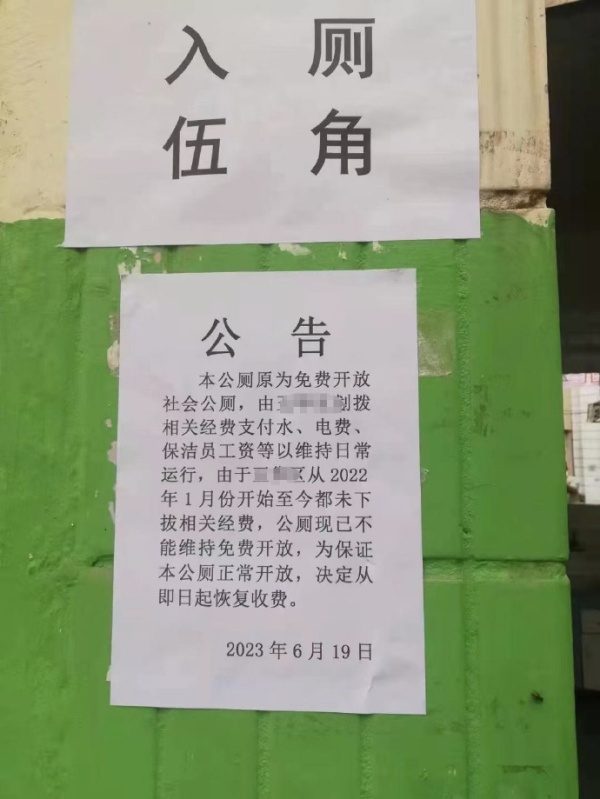 入 厕
伍 角
公 告
本公厕原为免费开放
社会公厕，由 划拨
相关经费支付水、电费、
保洁员工资等以维持日常
运行，由于 区从 2022
年 1 月份开始至今都未下
拨相关经费，公厕现已不
能维持免费开放，为保证
本公厕正常开放，决定从
即日起恢复收费。
2023 年 6 月 19 日